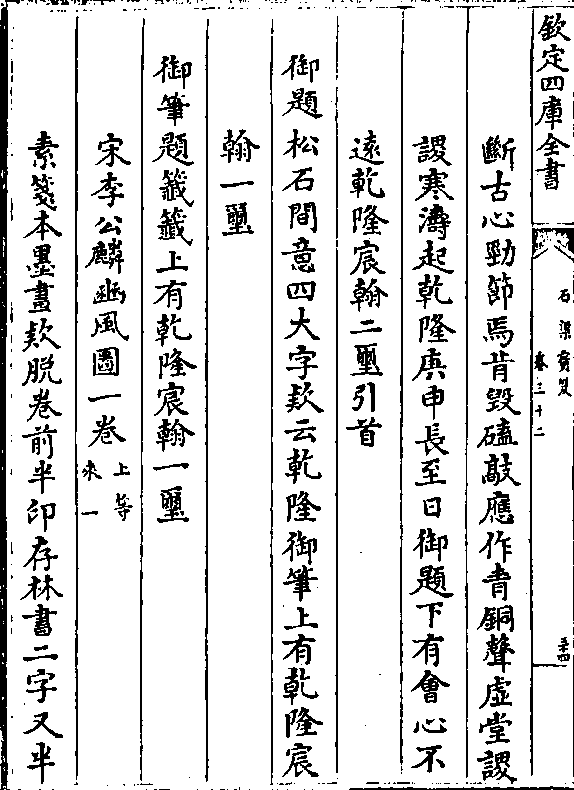 欽定四庫全書
石渠寶笈
卷三十二
五四
斷古心勁節焉肯毀磕敲應作青銅聲虛堂謖
謖寒濤起乾隆庚申長至日御題下有會心不
遠乾隆宸翰二璽引首
御題松石間意四大字欵云乾隆御筆上有乾隆宸
翰一璽
御筆題籤籤上有乾隆宸翰一璽
宋李公麟豳風圖一卷 上等
來一
素箋本墨畫欵脫卷前半印存林書二字又半